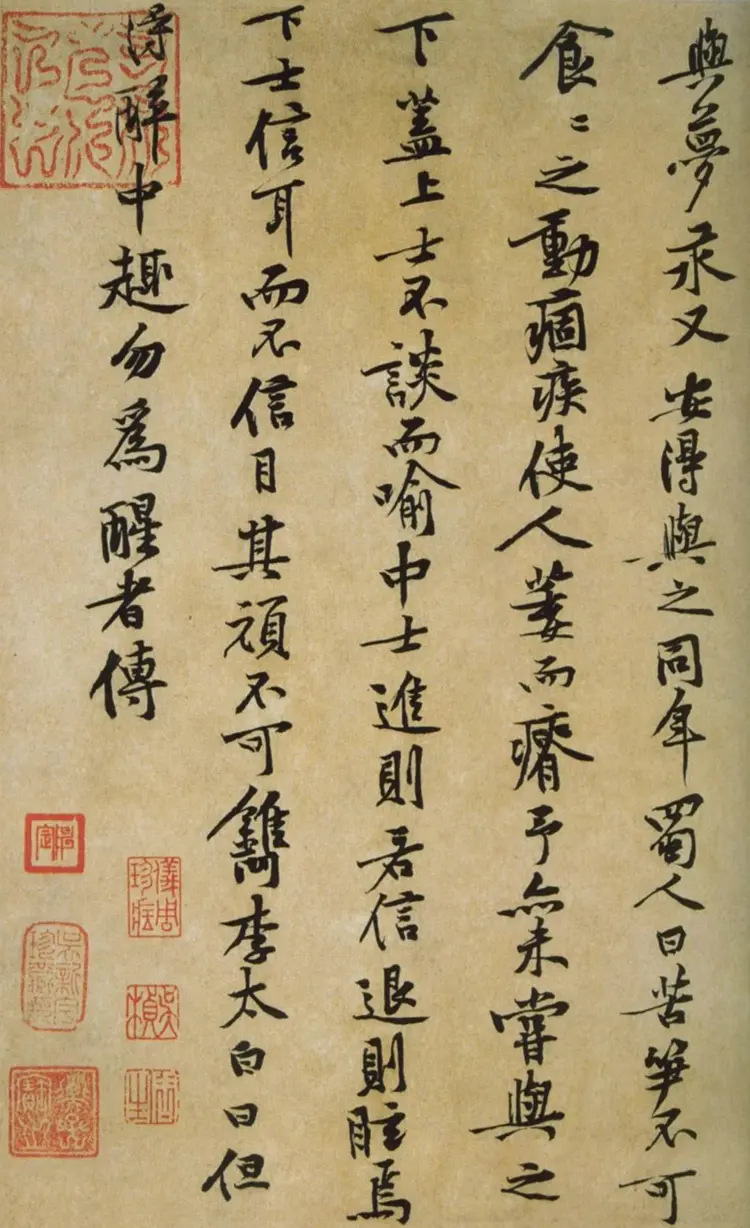 與夢汞又安得與之同年蜀人曰苦笋不可
食〻之動痼疾使人萎而瘠予亦未嘗與之
下蓋上士不談而喻中士進則若信退則眩焉
下士信耳而不信目其頑不可鐫李太白曰但
得醉中趣勿為醒者傳
儀周珍藏
吳楨